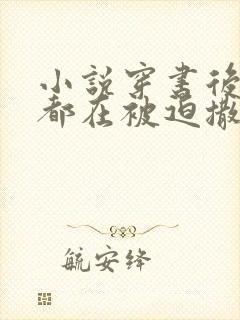 小說穿書後
都在被迫撒
航安绛